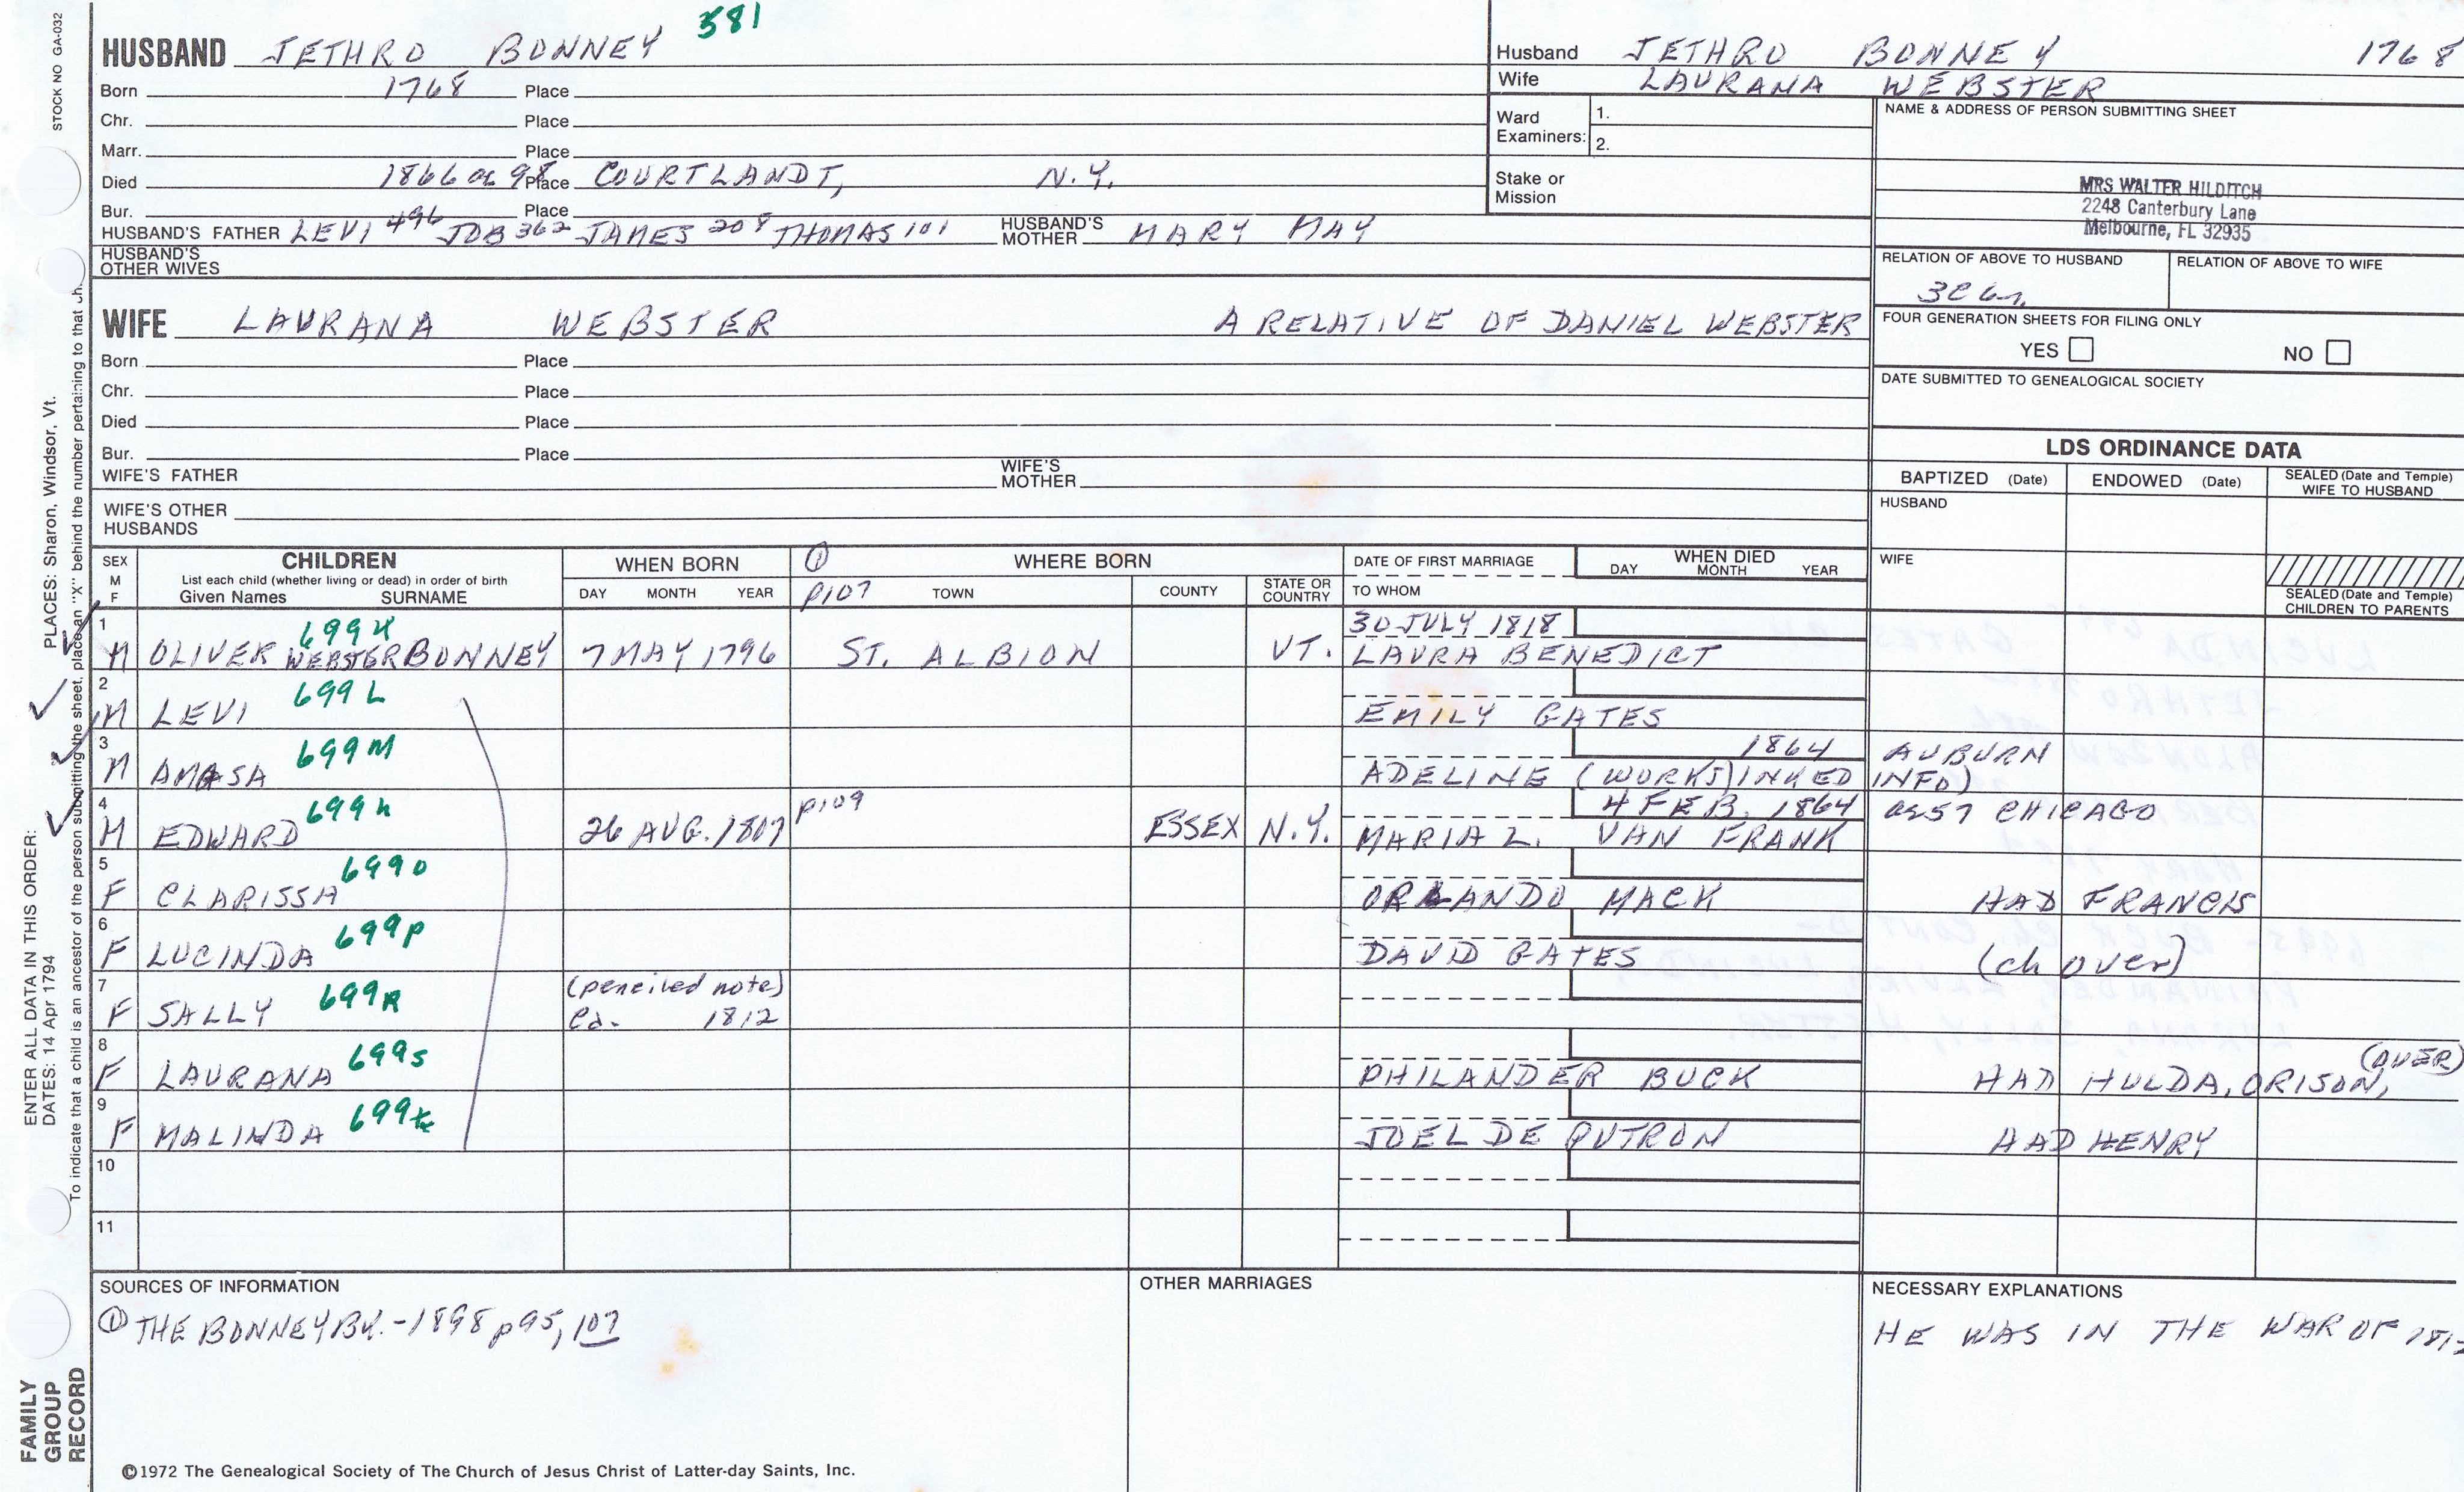 STOCK NO GA-032
581
HUSBAND JETHRO BONNEY
Born 1768 Place
Chr. Place
Marr. Place
Died 1866 or 98 Place COURTLANDT, N.Y.
Bur. Place
HUSBAND'S FATHER LEVI 496 JOB 362 JAMES 208 THOMAS 101 HUSBAND'S MOTHER MARY MAY
HUSBAND'S OTHER WIVES
WIFE LAURANA WEBSTER A RELATIVE OF DANIEL WEBSTER
Born Place
Chr. Place
Died Place
Bur. Place
WIFE'S FATHER WIFE'S MOTHER
WIFE'S OTHER HUSBANDS
Husband JETHRO BONNEY 1768
Wife LAURANA WEBSTER
Ward Examiners: 1.
2.
Stake or Mission
NAME & ADDRESS OF PERSON SUBMITTING SHEET
MRS WALTER HILDITCH
2248 Canterbury Lane
Melbourne, FL 32935
RELATION OF ABOVE TO HUSBAND RELATION OF ABOVE TO WIFE
FOUR GENERATION SHEETS FOR FILING ONLY
YES NO
DATE SUBMITTED TO GENEALOGICAL SOCIETY
LDS ORDINANCE DATA
BAPTIZED (Date) ENDOWED (Date) SEALED (Date and Temple) WIFE TO HUSBAND
HUSBAND
WIFE
SEALED (Date and Temple) CHILDREN TO PARENTS
SEX M F
CHILDREN
List each child (whether living or dead) in order of birth
Given Names SURNAME
WHEN BORN
DAY MONTH YEAR
① WHERE BORN
P107 TOWN COUNTY STATE OR COUNTRY
DATE OF FIRST MARRIAGE
TO WHOM
WHEN DIED
DAY MONTH YEAR
1 699K 30 JULY 1818
M OLIVER WEBSTER BONNEY 7 MAY 1796 ST. ALBION VT. LAURA BENEDICT
2 699L
M LEVI EMILY GATES
3 699M 1864 AUBURN
M AMASA ADELINE (WORKS) INKED INFO)
4 699N P109 4 FEB. 1864 or 57 CHICAGO
M EDWARD 26 AUG. 1807 ESSEX N.Y. MARIA L. VAN FRANK
5 699O
F CLARISSA ORLANDO MACK HAD FRANCIS
6 699P
F LUCINDA DAVID GATES (ch over)
7 699R (penciled note)
F SALLY Ca. 1812
8 699S (OVER)
F LAURANA PHILANDER BUCK HAD HULDA, ORISON,
9 699t
F MALINDA JOEL DE PUTRON HAD HENRY
10
11
SOURCES OF INFORMATION
① THE BONNEY BK. - 1898 p 95, 107
OTHER MARRIAGES
NECESSARY EXPLANATIONS
HE WAS IN THE WAR OF 1812
©1972 The Genealogical Society of The Church of Jesus Christ of Latter-day Saints, Inc.
FAMILY GROUP RECORD
ENTER ALL DATA IN THIS ORDER:
DATES: 14 Apr 1794 PLACES: Sharon, Windsor, Vt.
To indicate that a child is an ancestor of the person submitting the sheet, place an "X" behind the number pertaining to that ch